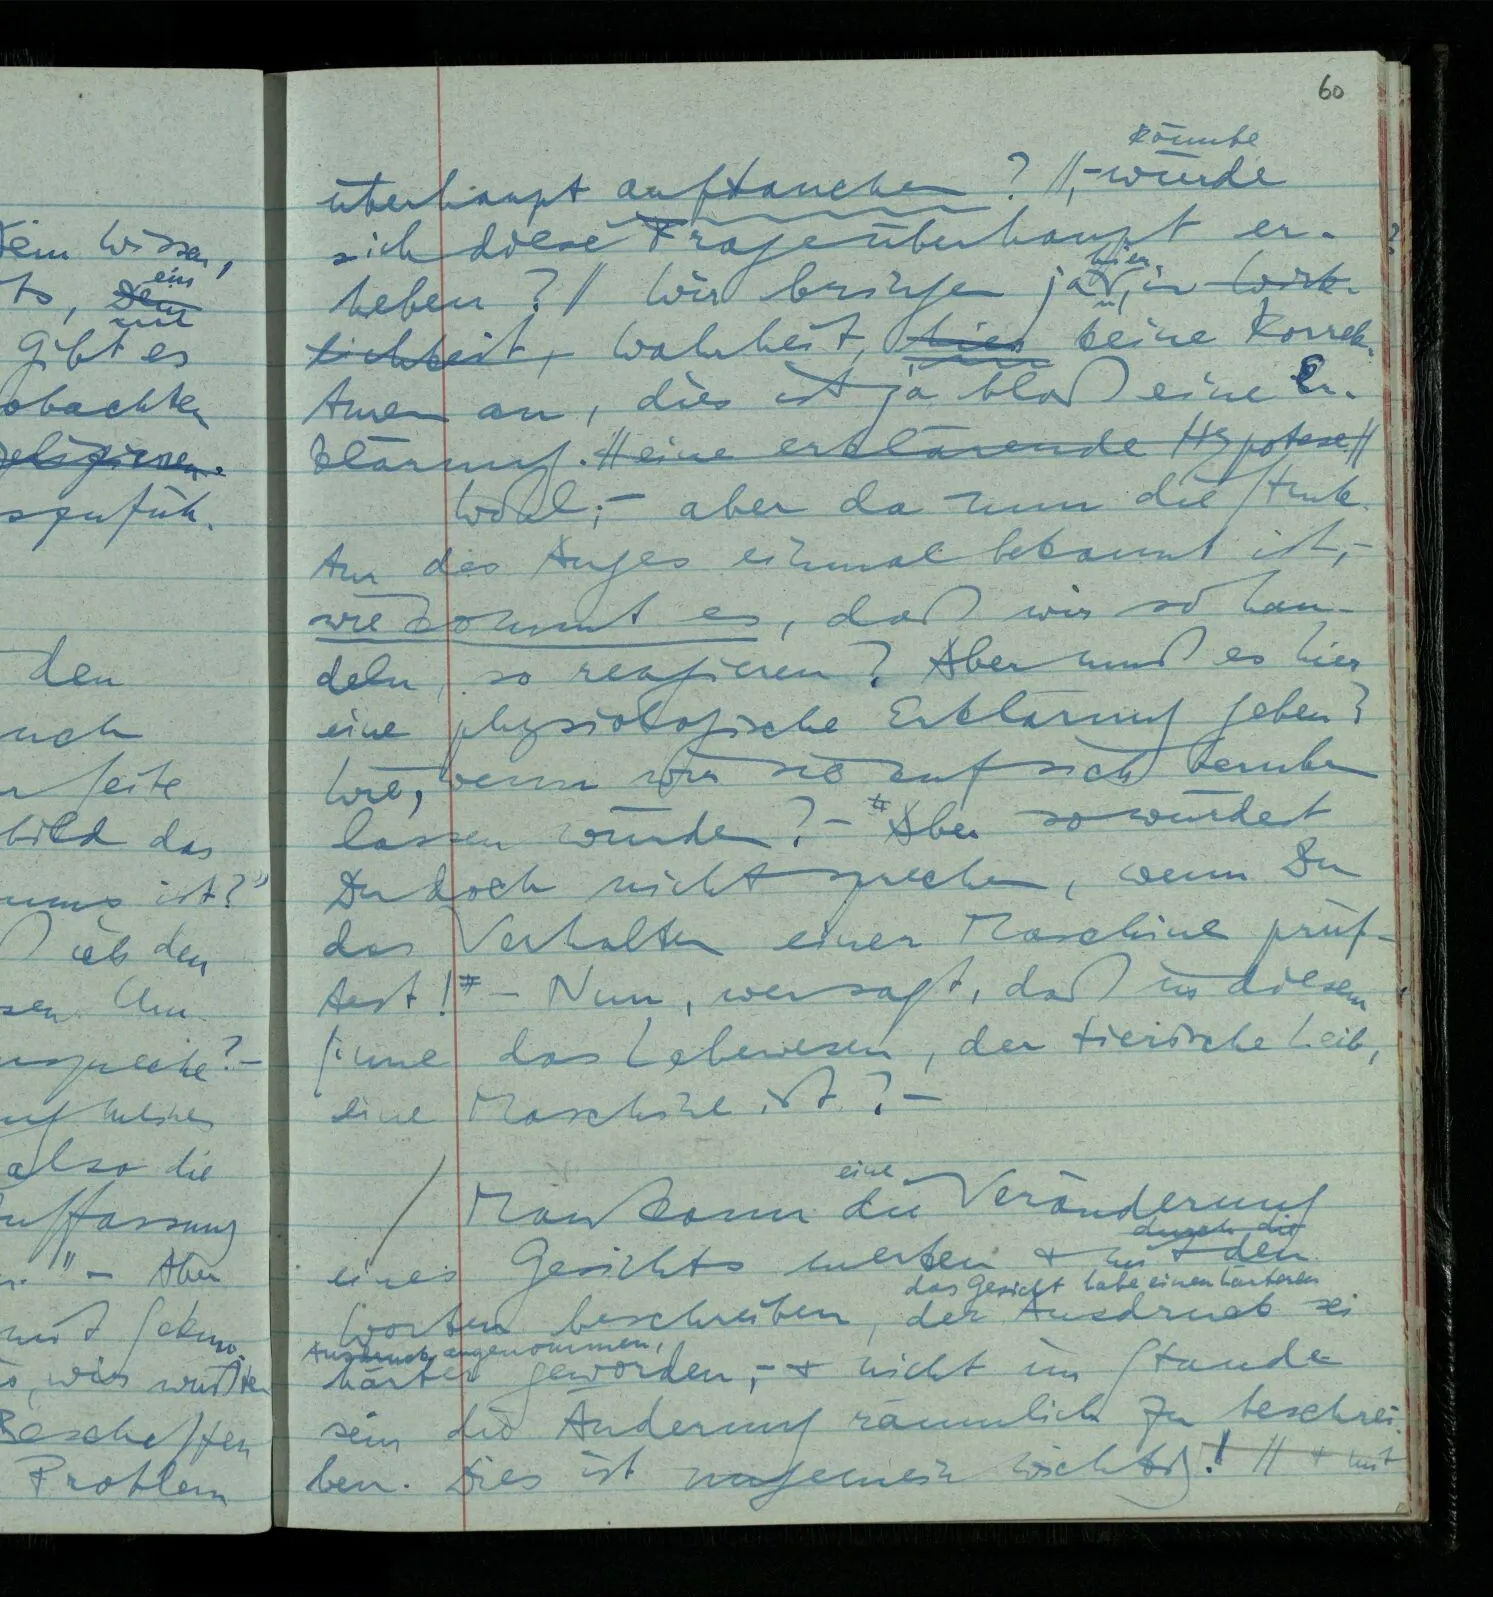 60
ein Wissen,
ein
ts, Dein
Gibt es
obachten
sgufüh.
den
uch
r Seite
bild das
ums ist?"
ß ich den
sen. Um
usspreche?–
auf meiner
also die
Auffassung
." – Aber
mit Gekno.
so, wir wußten
Beschaffen
Problem
könnte
überhaupt auftauchen? //,–würde
sich diese Frage überhaupt er-
hier
heben?// Wir bringen ja, in Wirk-
lichkeit, Wahrheit, hier keine Korrek-
turen an, dies ist ja bloß eine Er-
klärung. //eine erklärende Hypotese//
Wohl;– aber da nun die Struk-
tur des Auges einmal bekannt ist,–
wie kommt es, daß wir so han-
deln, so reagieren? Aber muß es hier
eine physiologische Erklärung geben?
Wie, wenn wir sie auf sich beruhen
lassen würden?– "Aber so würdest
Du doch nicht sprechen, wenn Du
das Verhalten einer Maschine prüf-
test!" – Nun, wer sagt, daß in diesem
Sinne das Lebewesen, der tierische Leib,
eine Maschine ist?–
eine
/ Man kann die Veränderung
durch die
eines Gesichts merken & mit den
das Gesicht habe einen härteren
Worten beschreiben, der Ausdruck sei
Ausdruck angenommen,
härter geworden,– & nicht im Stande
sein die Änderung räumlich zu beschrei-
ben. Dies ist ungemein wichtig! // & mit